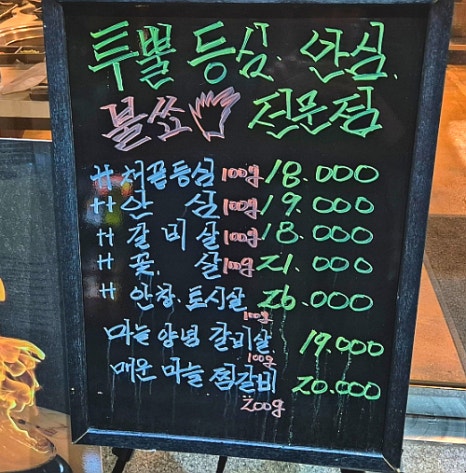 투뿔 등심. 안심.
불쑈 전문점
++ 채끝등심 100g 18.000
++ 안 심 100g 19.000
++ 갈비살 100g 18.000
++ 꽃. 살 100g 21.000
++ 안창.토시살 100g 26.000
마늘양념 갈비살 100g 19.000
매운 마늘 찜갈비 200g 20.000